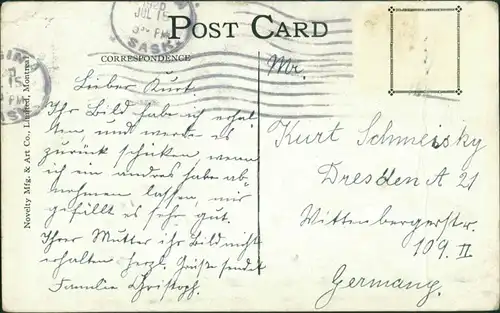 POST CARD
JUL 15
PM
SASK
CORRESPONDENCE
Novelty Mfg. & Art Co., Limited, Montreal
Lieber Kurt.
Ihr Bild habe ich erhal
ten, und werde es
zurück schicken, wenn
ich ein andres habe ab
nehmen lassen, mir
gefällt es sehr gut.
Ihrer Mutter ihr Bild nicht
erhalten herzl. Grüße sendet
Familie Christoph.
Mr.
Kurt Schmeissky
Dresden A 21
Wittenbergerstr.
109. II
Germany.